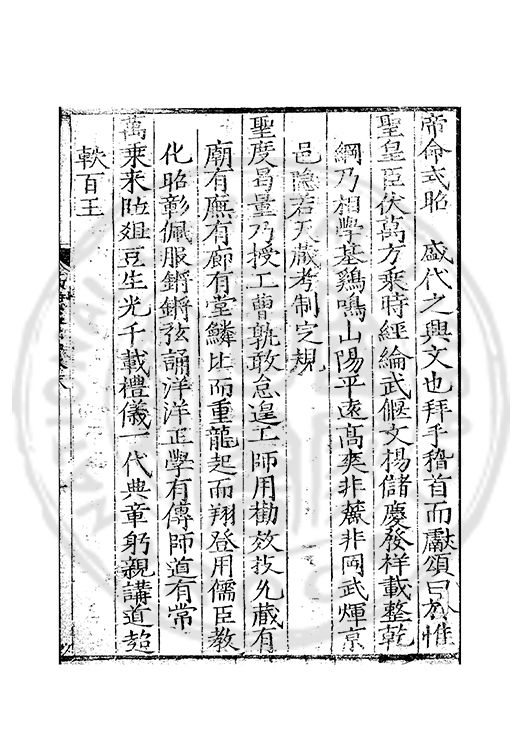 帝命式昭　盛代之興文也拜手稽首而獻頌曰於惟
聖皇臣伏萬方乘時經綸武偃文揚儲慶發祥載整乾
綱乃相學基鷄鳴山陽平遠高爽非麓非岡武煇京
邑隐若天蔵考制定規
聖度曷量乃授工曹孰敢怠遑工師用勸效技允蔵有
廟有廡有廊有堂鱗比而重龍起而翔登用儒臣教
化昭彰佩服鏘鏘弦誦洋洋正學有傳師道有常
萬乘来陟爼豆生光千載禮儀一代典章躬親講道超
軼百王